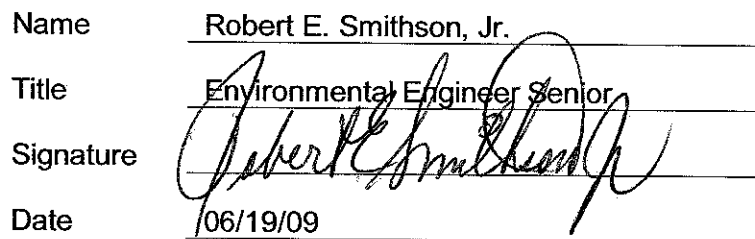 Name Robert E. Smithson, Jr.
Title Environmental Engineer Senior
Signature Robert E Smithson Jr
Date 06/19/09